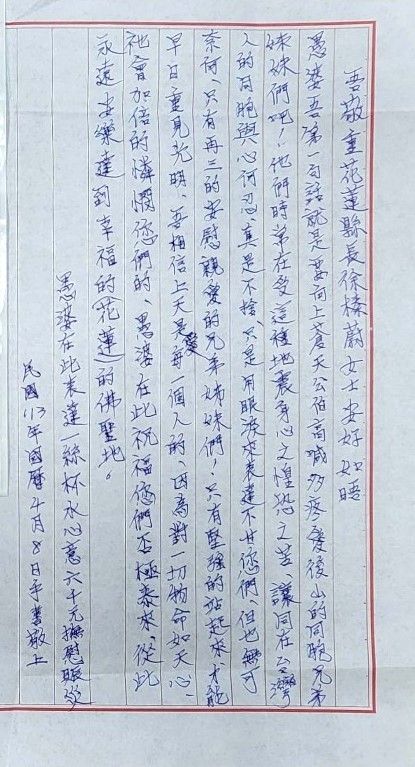 吾敬重花蓮縣長徐榛蔚女士安好如晤
愚婆吾第一句話就是要向上蒼天公伯高喊多疼愛後山的同胞兄弟
姊妹們吧！他們時常在受這種地震身心之惶恐之苦、讓同在台灣
人的同胞與心何忍、真是不捨、只是用眼淚來表達不甘您們、但也無可
奈何、只有再三的安慰親愛的兄弟姊妹們！只有堅強的站起來才能
早日重見光明、吾相信上天是愛每一個人的、因為對一切物命如天心、
祂會加倍的憐憫您們的、愚婆在此祝福您們否極泰來、從此
永遠快樂達到幸福的(花蓮)的佛聖地。
愚婆在此表達一絲杯水心意六千元撫慰賑災
民國113年國曆4月8日 書敬上